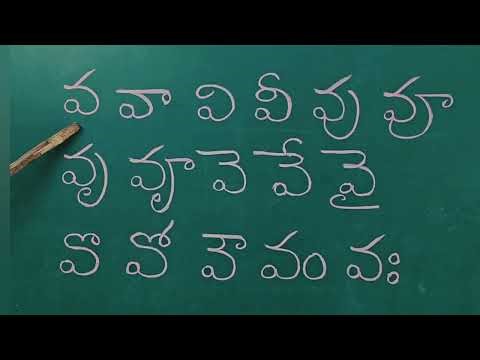 వ వా వి వీ వు వూ
వృ వౄ వె వే వై
వొ వో వౌ వం వః